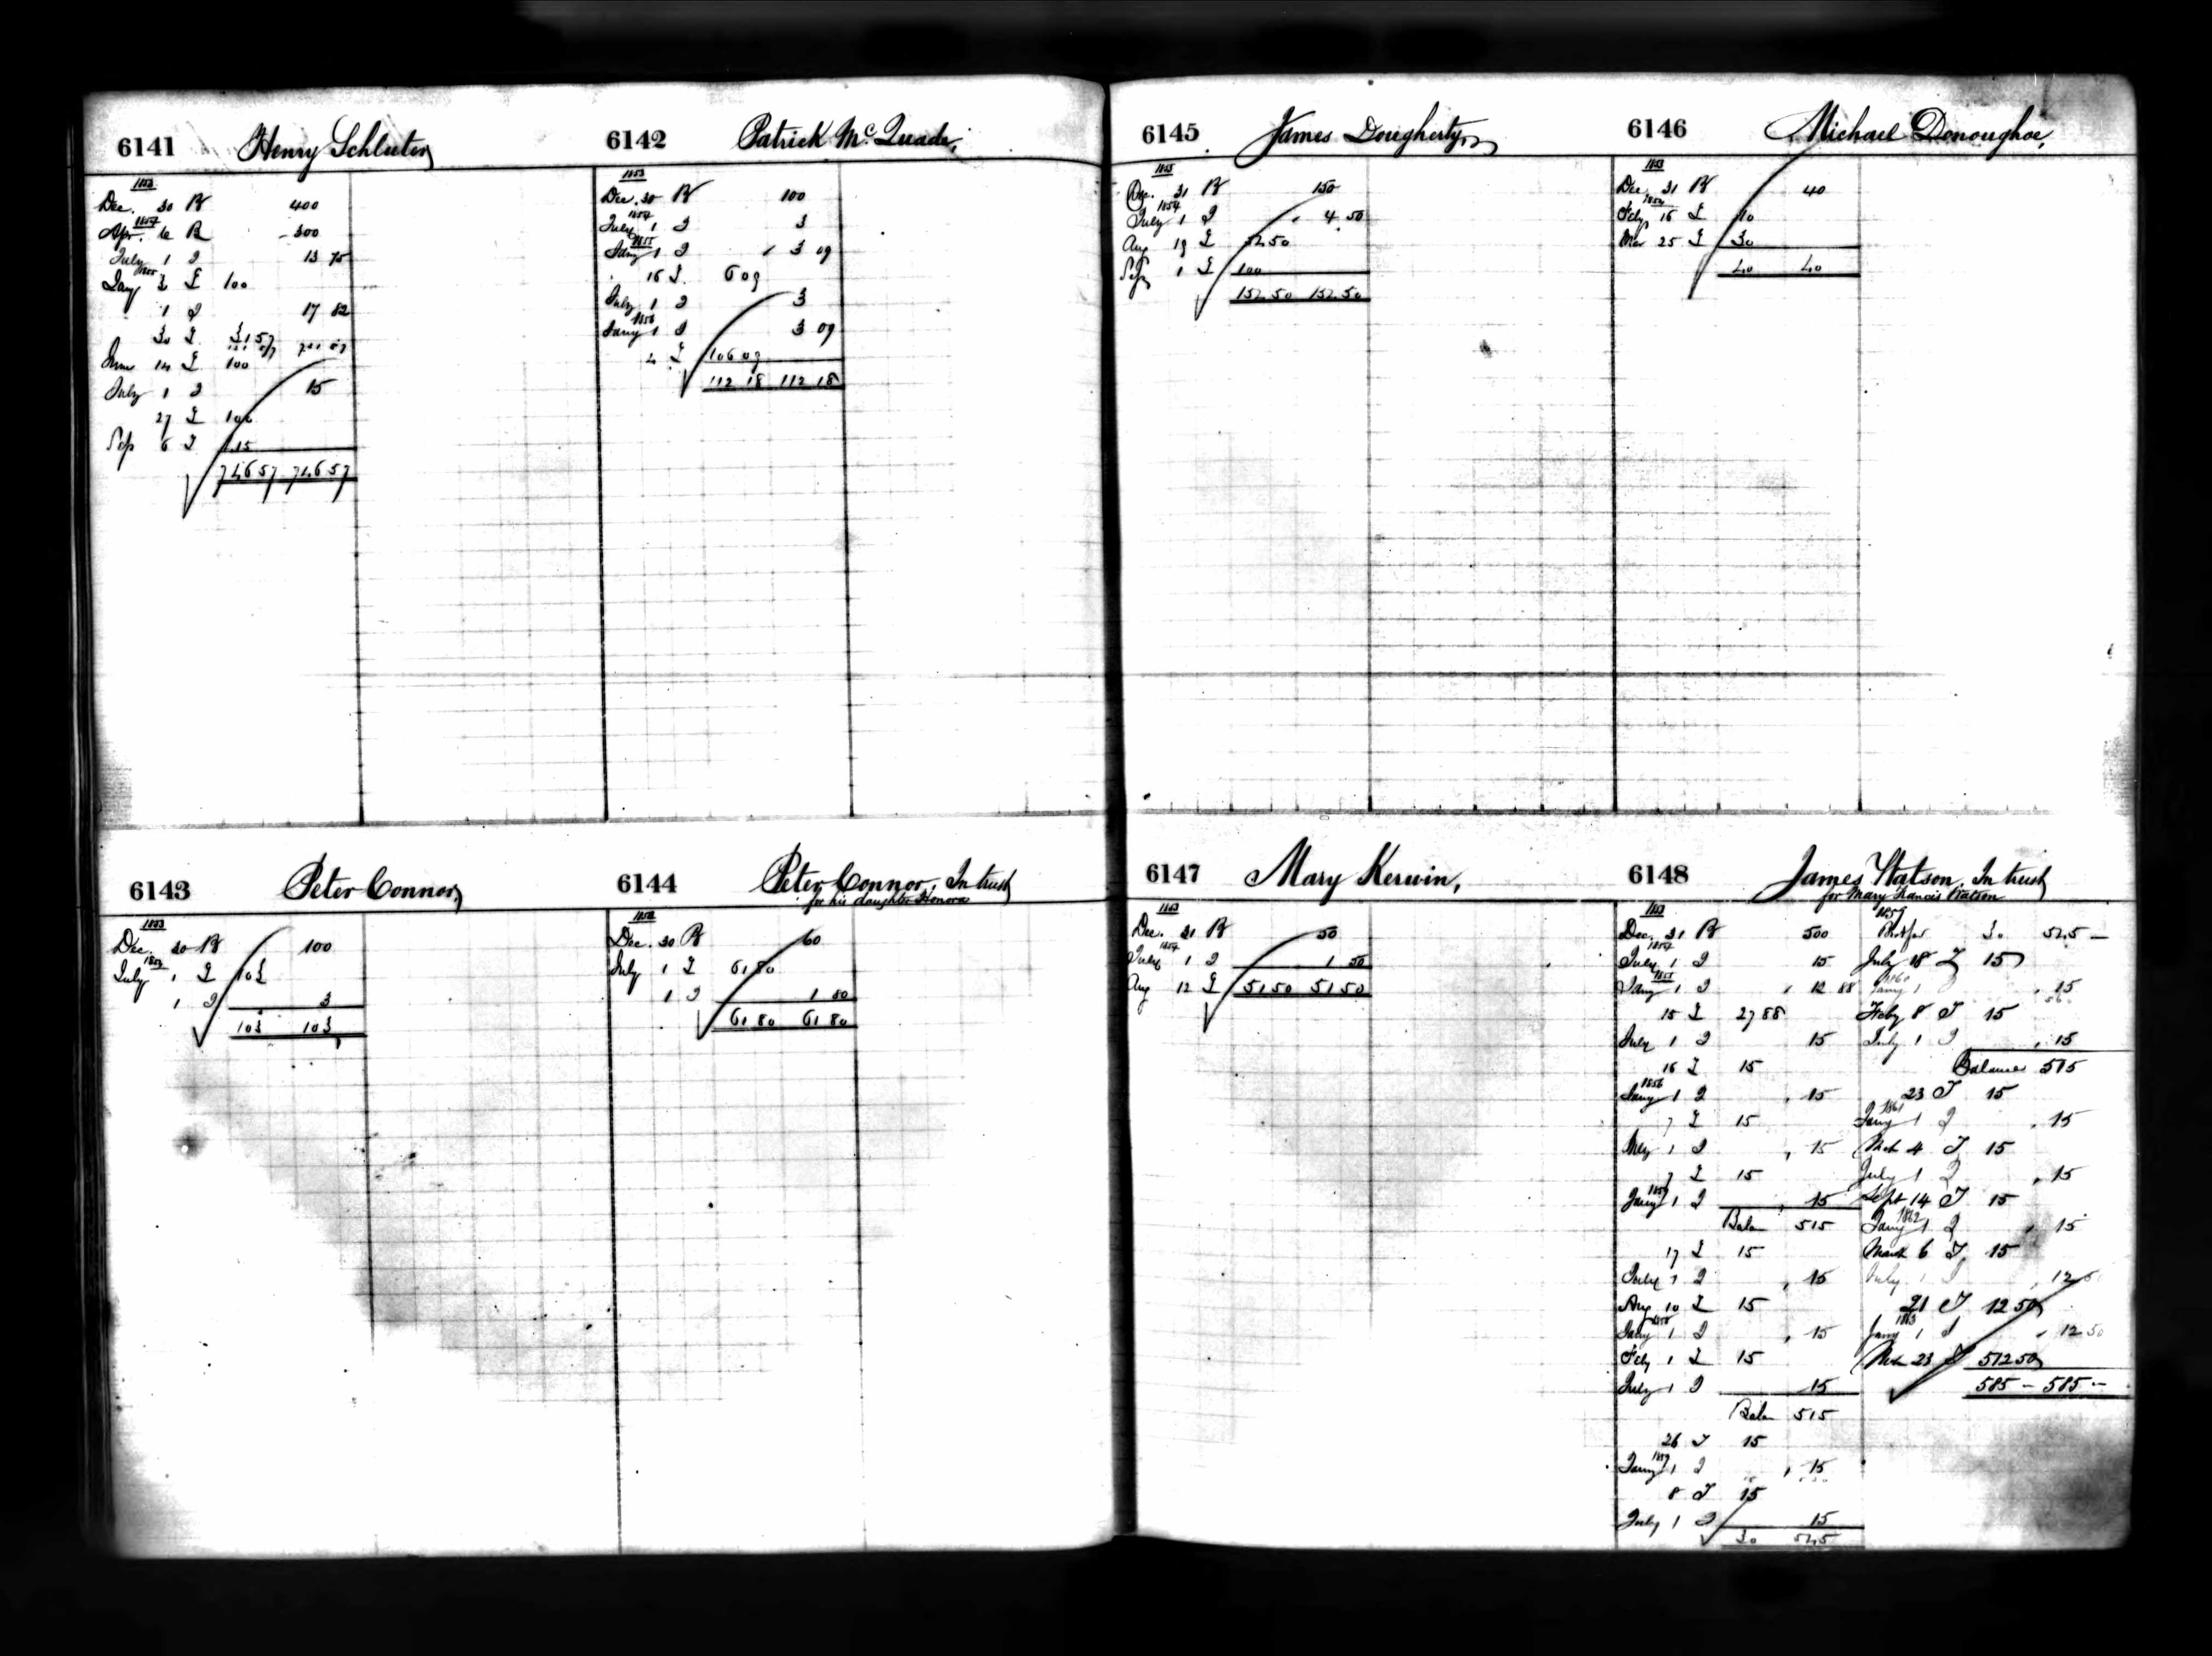 6141 Henry Schluter
1853
Dec. 30 R 400
1854
Apr. 6 R 300
July 1 I 13 75
1855
Jany 3 I 100
1 I 17 82
30 I
June 14 I 100
July 1 I 15
27 I 100
Sep 6 I 115
746 57 746 57
6142 Patrick McQuade,
1853
Dec. 30 R 100
1854
July 1 I 3
1855
Jany 1 I 3 09
16 I 6 09
July 1 I 3
1856
Jany 1 I 3 09
4 I 106 09
112 18 112 18
6143 Peter Connor,
1853
Dec. 30 R 100
1854
July 1 I 103
1 I 3
103 103
6144 Peter Connor, In trust
for his daughter Honora
1853
Dec. 30 R 60
July 1 I 61 80
1 I 1 80
61 80 61 80
6145 James Dougherty,
1853
Dec. 31 R 150
1854
July 1 I 4 50
Aug 19 I 52 50
Sep 1 I 100
152 50 152 50
6146 Michael Donoughoe,
1853
Dec 31 R 40
1854
Feby 16 I 10
Mar 25 I 30
40 40
6147 Mary Kerwin,
1853
Dec. 31 R 50
1854
July 1 I 1 50
Aug 12 I 51 50 51 50
6148 James Watson, In trust
for Mary Francis Watson
1853
Dec. 31 R 500
1854
July 1 I 15
1855
Jany 1 I 12 88
15 I 27 88
July 1 I 15
16 I 15
1856
Jany 1 I 15
7 I 15
July 1 I 15
7 I 15
1857
Jany 1 I 15
Balan 515
17 I 15
July 1 I 15
Aug 10 I 15
1858
Jany 1 I 15
Feby 1 I 15
July 1 I 15
Balan 515
26 I 15
1859
Jany 1 I 15
8 I 15
July 1 I 15
30 545
1859
30 545 —
July 18 I 15
1860
Jany 1 15
Feby 8 I 15
July 1 I 15
Balance 515
23 I 15
1861
Jany 1 I 15
Mch 4 I 15
July 1 I 15
Sept 14 I 15
1862
Jany 1 I 15
March 6 I 15
July 1 I 12 50
21 I 12 50
1863
Jany 1 I 12 50
Mch 23 I 512 50
585 — 585 —